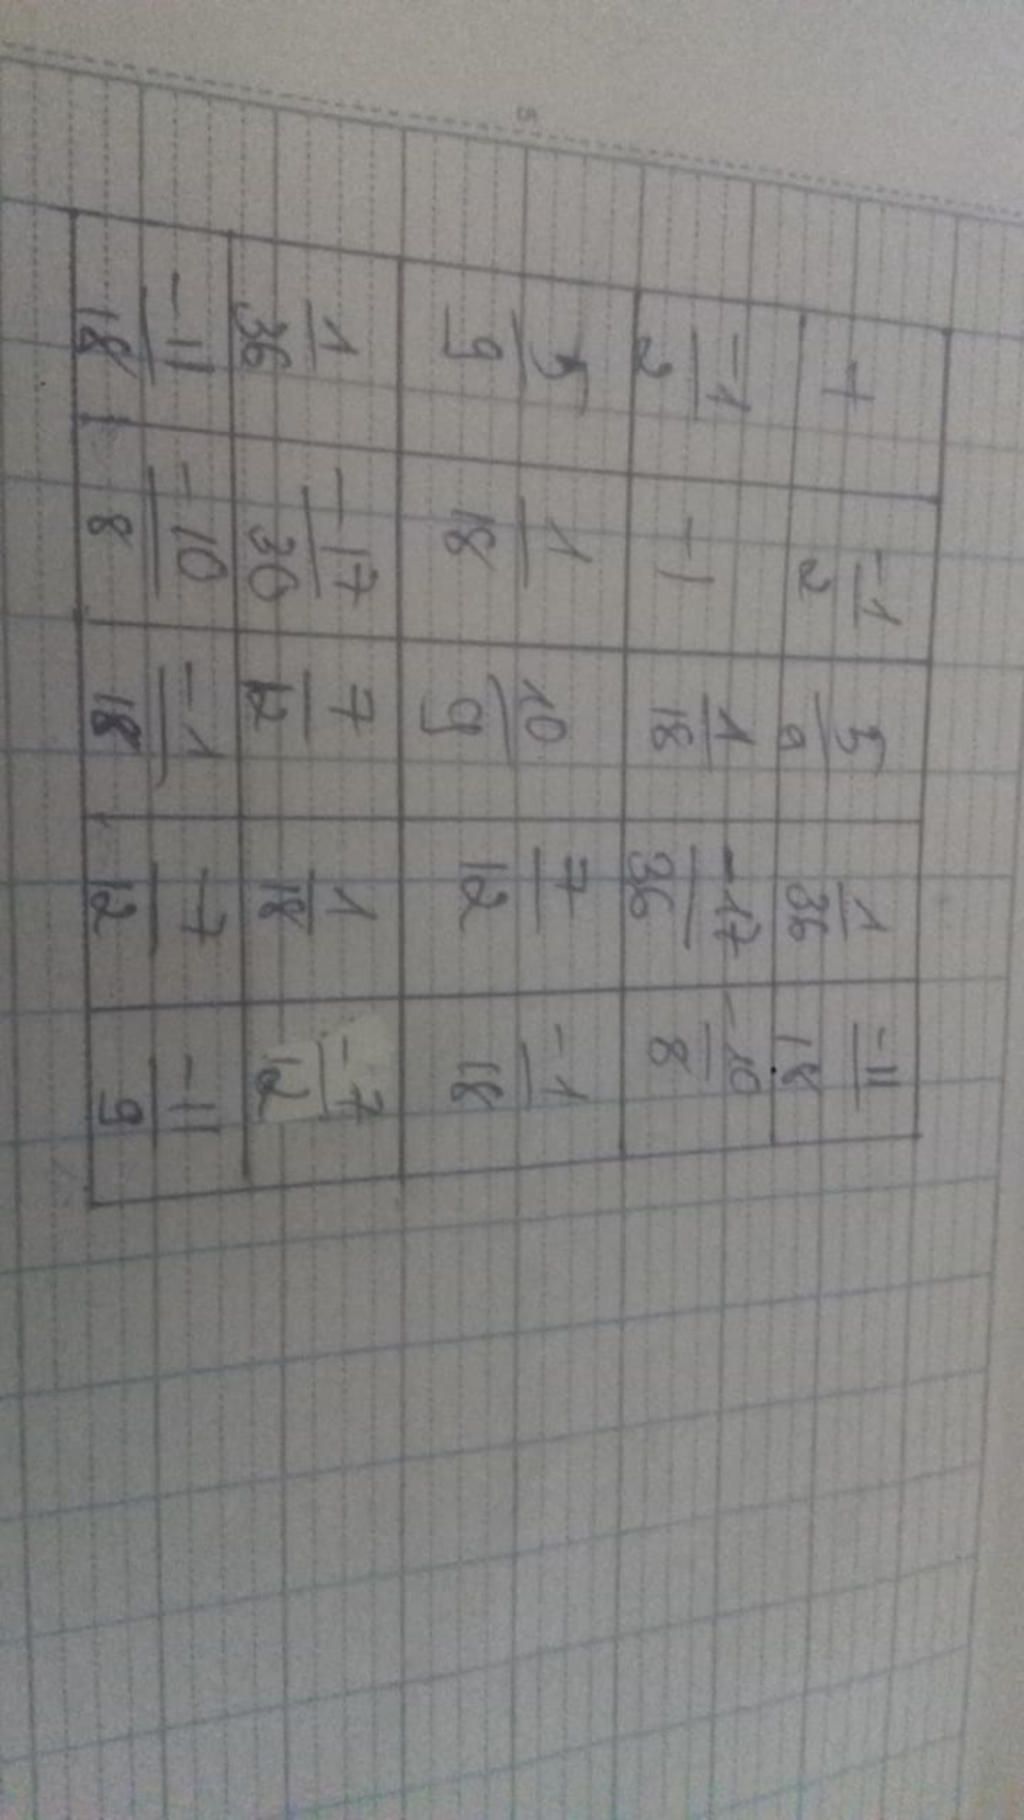 + -1/2 5/9 1/36 -11/18
-1/2 -1 1/18 -17/36 -10/8
5/9 1/18 10/9 7/12 -1/18
1/36 -17/36 7/12 1/18 -7/12
-11/18 -10/8 -1/18 -7/12 -11/9